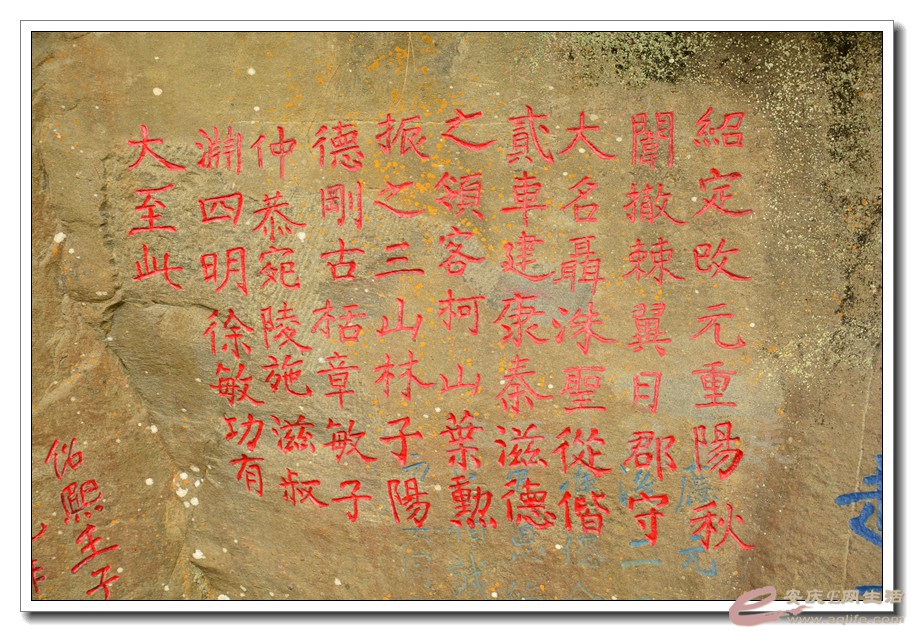 紹定改元重陽秋
闈撤棘翼日郡守
大名聶洙聖從偕
貳車建康秦滋德
之領客柯山葉勲
振之三山林子陽
德剛古栝章敏子
仲恭宛陵施滋叔
淵四明徐敏功有
大至此
佑熙壬子
安庆E网生活
www.aqlife.com